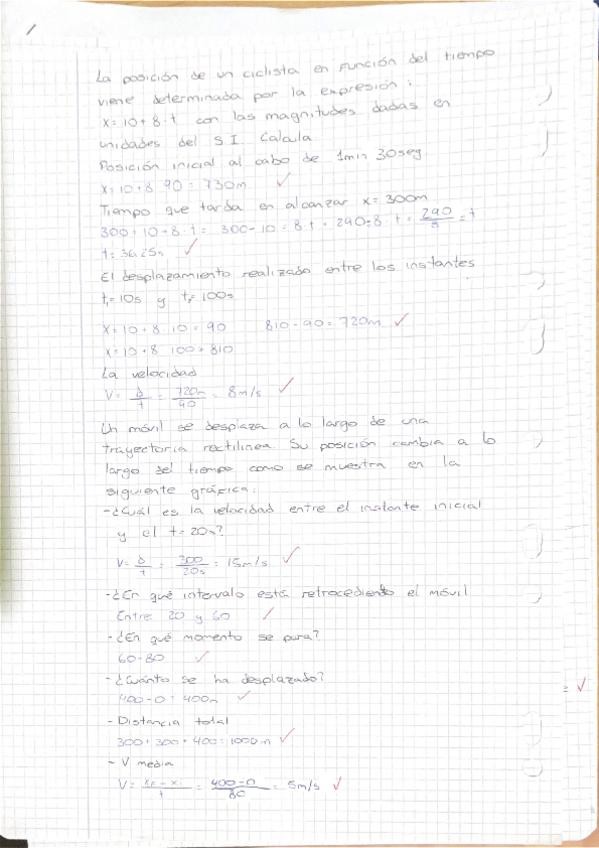 La posición de un ciclista en función del tiempo
viene determinada por la expresión:
x=10+8·t con las magnitudes dadas en
unidades del S.I. Calcula
Posición inicial al cabo de 1min 30seg
x=10+8·90=730m
Tiempo que tarda en alcanzar x=300m
300=10+8·t= 300-10=8·t=290=8·t= 290/8 =t
t=36,25s
El desplazamiento realizado entre los instantes
t₁=10s y t₂=100s
x=10+8·10=90 810-90=720m
x=10+8·100=810
La velocidad
V= Δ/t = 720m/90 = 8m/s
Un móvil se desplaza a lo largo de una
trayectoria rectilínea. Su posición cambia a lo
largo del tiempo como se muestra en la
siguiente gráfica:
-¿Cuál es la velocidad entre el instante inicial
y el t=20s?
V= Δ/t = 300/20s = 15m/s
-¿En qué intervalo está retrocediendo el móvil
Entre 20 y 60
-¿En qué momento se para?
60-80
-¿Cuánto se ha desplazado?
400-0=400m
- Distancia total
300+300+400=1000m
- V media
V= xf-xi/t = 400-0/80 = 5m/s